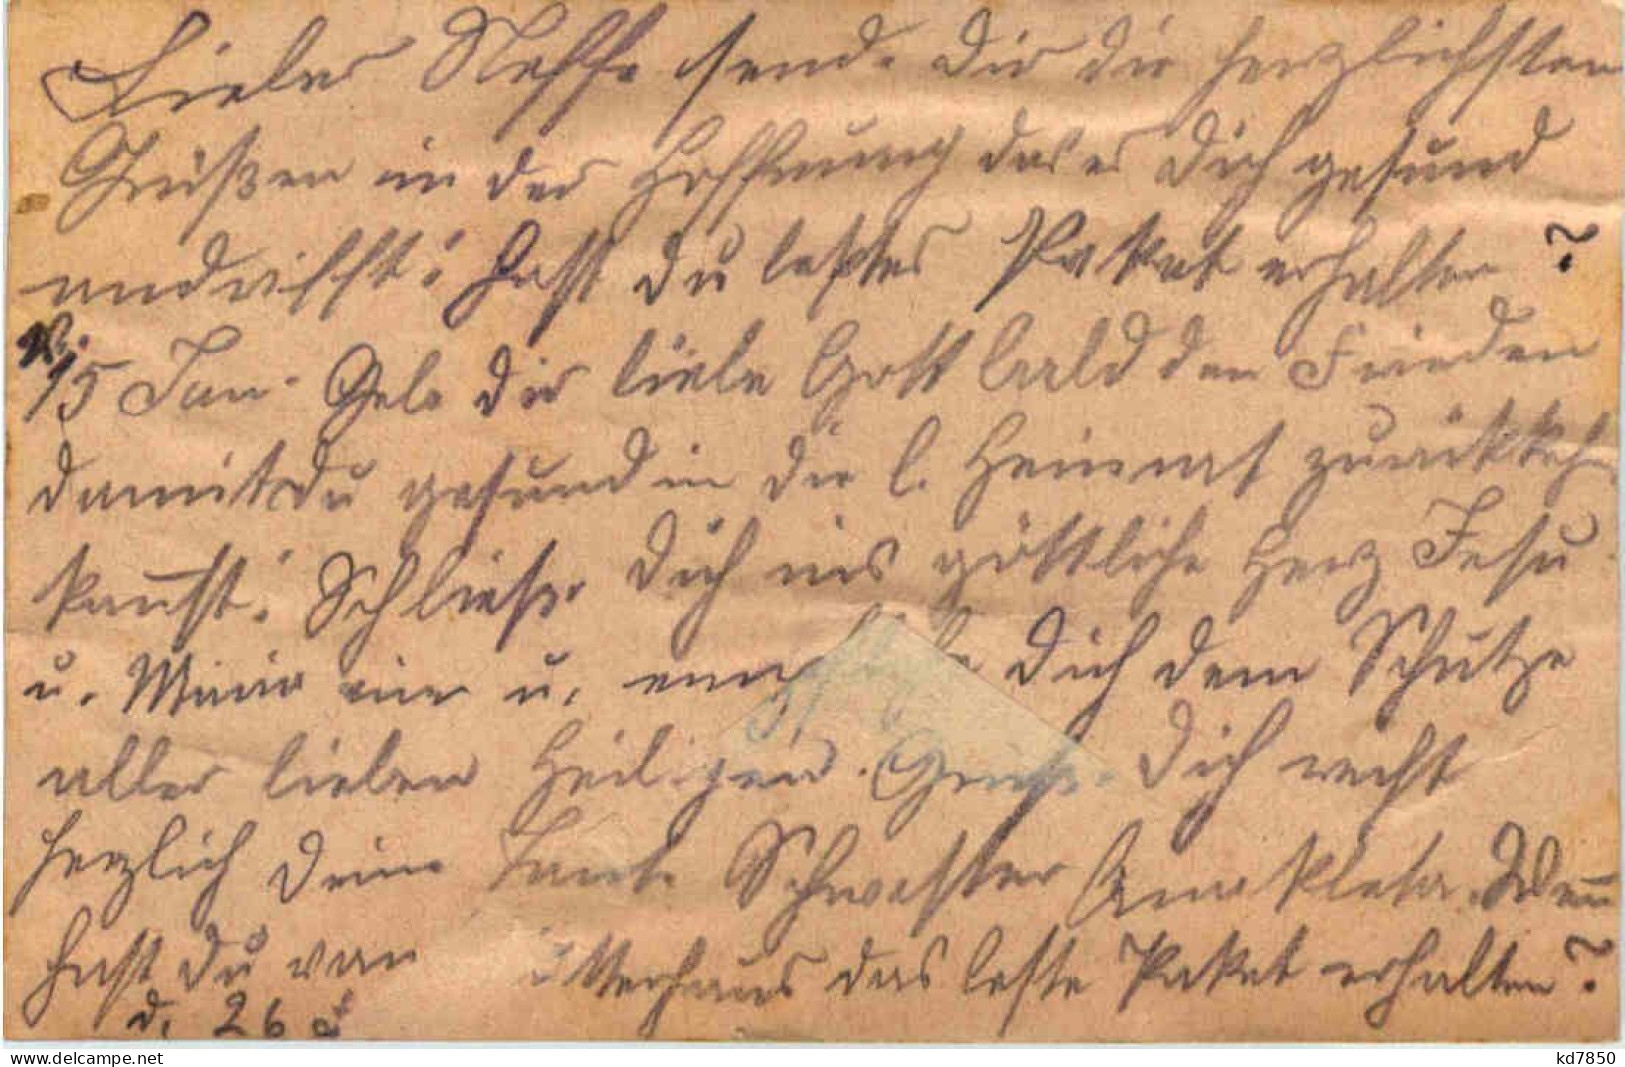 Lieber Neffe sende Dir die herzlichsten
Grüßen in der Hoffnung das es Dich gesund
andrifft. Hast Du letztes Paket erhalten ?
15 Jan. Gebe der liebe Gott bald den Frieden
damit du gesund in die l. Heimat zurückkeh
kannst. Schließe Dich ins göttliche Herz Jesu
u. Maria ein u. empfehle Dich dem Schutze
aller lieben Heiligen. Grüße Dich recht
herzlich Deine Tante Schwester Anakleta. Wen̄
hast Du von das letzte Paket erhalten ?
d. 26
kd7850